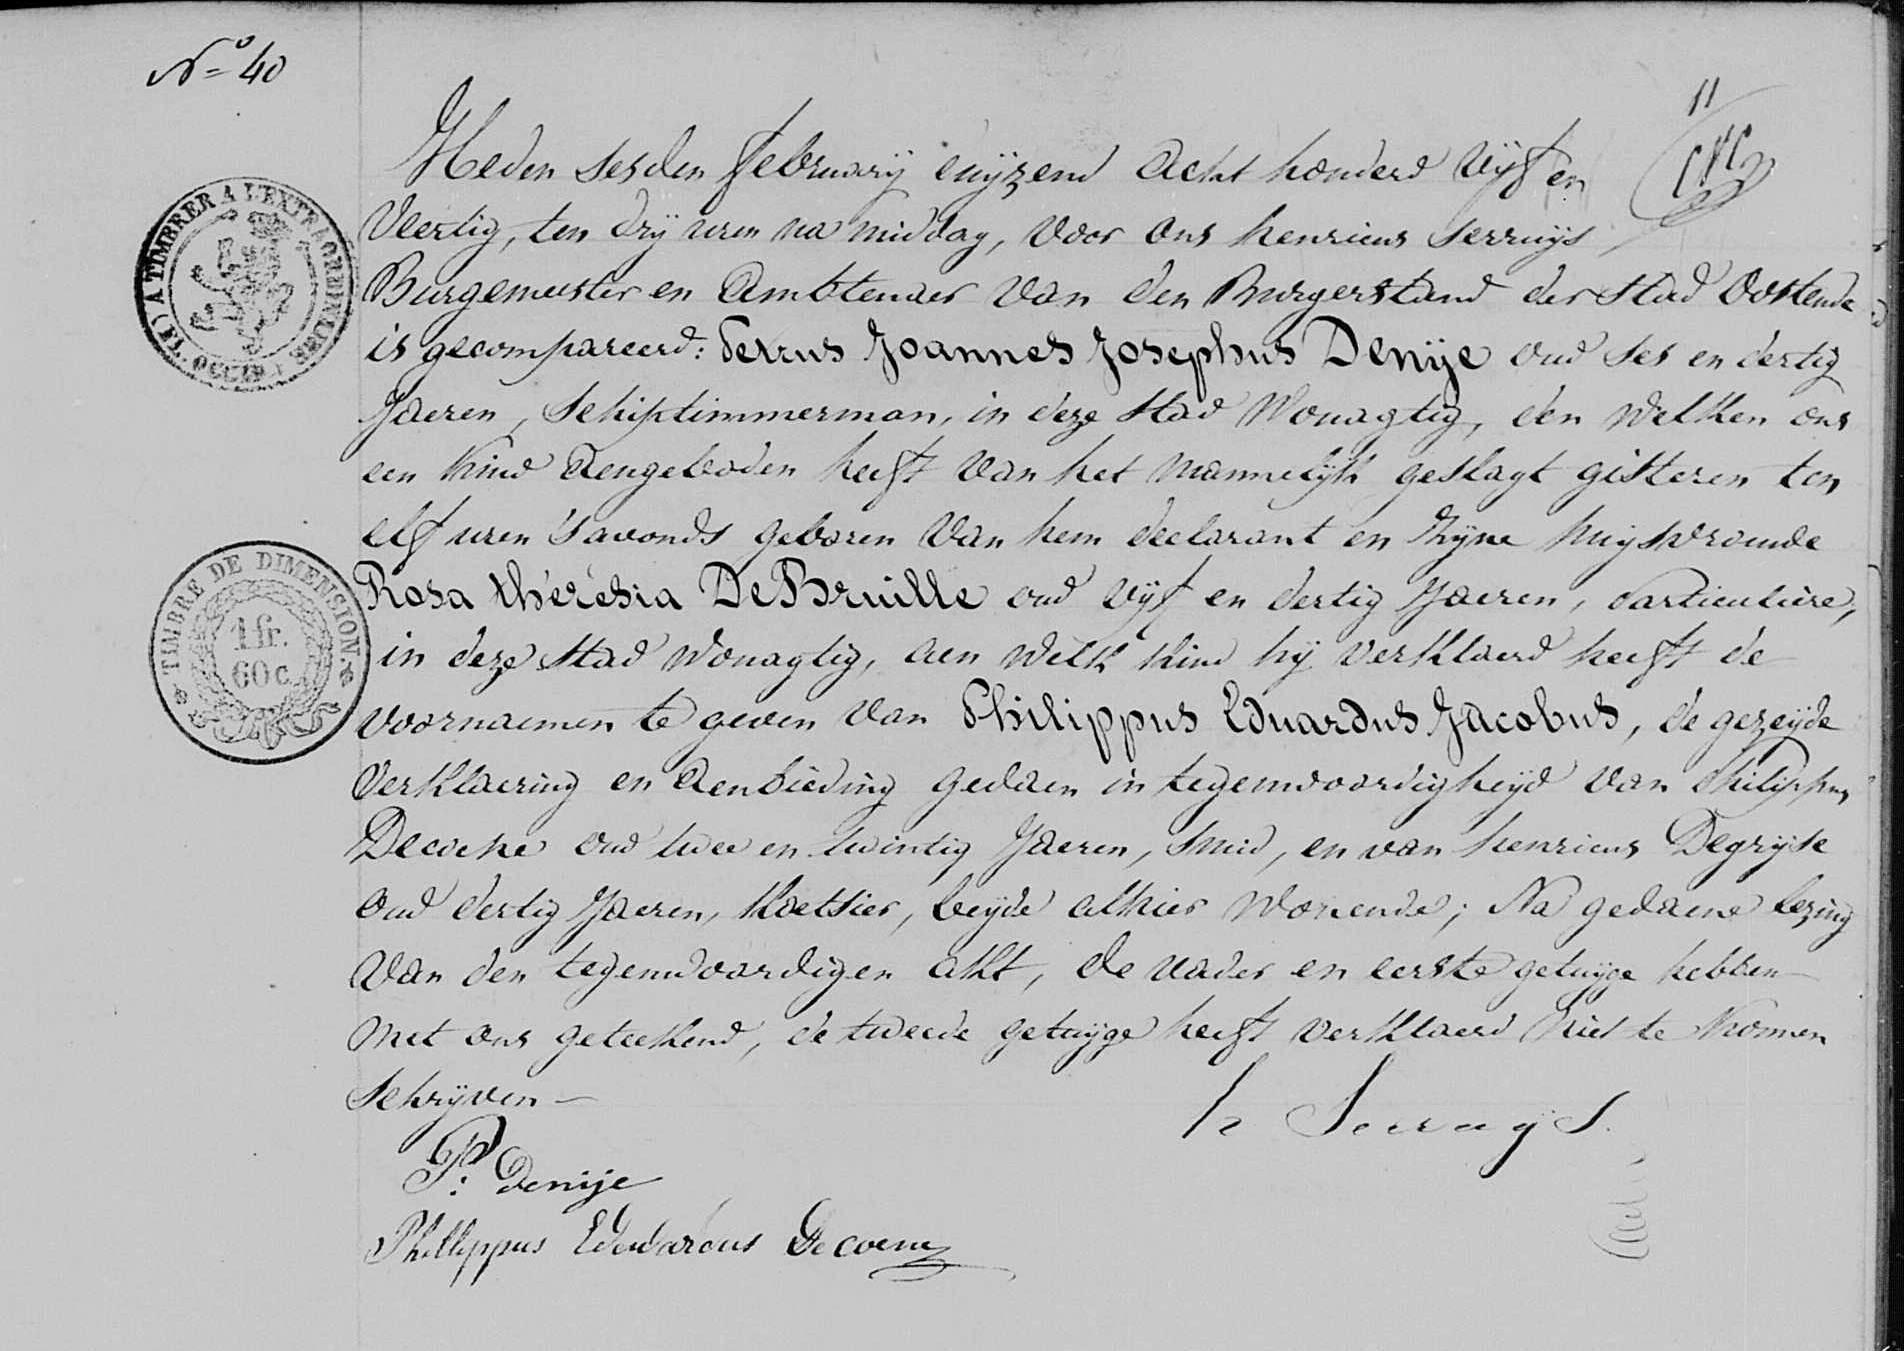 N° 40
11
Heden sesden february duyzend acht honderd vyf en
veertig, ten dry uren na middag, voor ons henricus serruys
Burgemeester en Ambtenaer van den Burgerstand der stad Oostende
is gecompareerd: Petrus Joannes Josephus Denije oud ses en dertig
Jaeren, schiptimmerman, in deze stad Wonagtig, den welken ons
een Kind aengeboden heeft van het mannelyk geslagt gisteren ten
elf uren 's avonds geboren van hem declarant en zyne huysvrouwe
Rosa thérésia DeBruille oud vyf en dertig Jaeren, particuliere,
in deze stad wonagtig, aen welk kind hy verklaerd heeft de
voornaemen te geven van Philippus Eduardus Jacobus, de gezeyde
verklaering en aenbieding gedaen in tegenwoordigheyd van Philippus
Decoene oud twee en twintig Jaeren, smid, en van henricus Degryse
oud dertig Jaeren, Koetsier, beyde alhier wonende; Na gedaene lezing
van den tegenwoordigen akt, de vader en eerste getuyge hebben
met ons geteekend, de tweede getuyge heeft verklaerd niet te konnen
schryven —
h Serruys.
P: Denije
Phillippus Edewardus Decoene
A TIMBRER A L'EXTRAORDINAIRE
(FL. OCCID.)
TIMBRE DE DIMENSION.
1 fr.
60 c